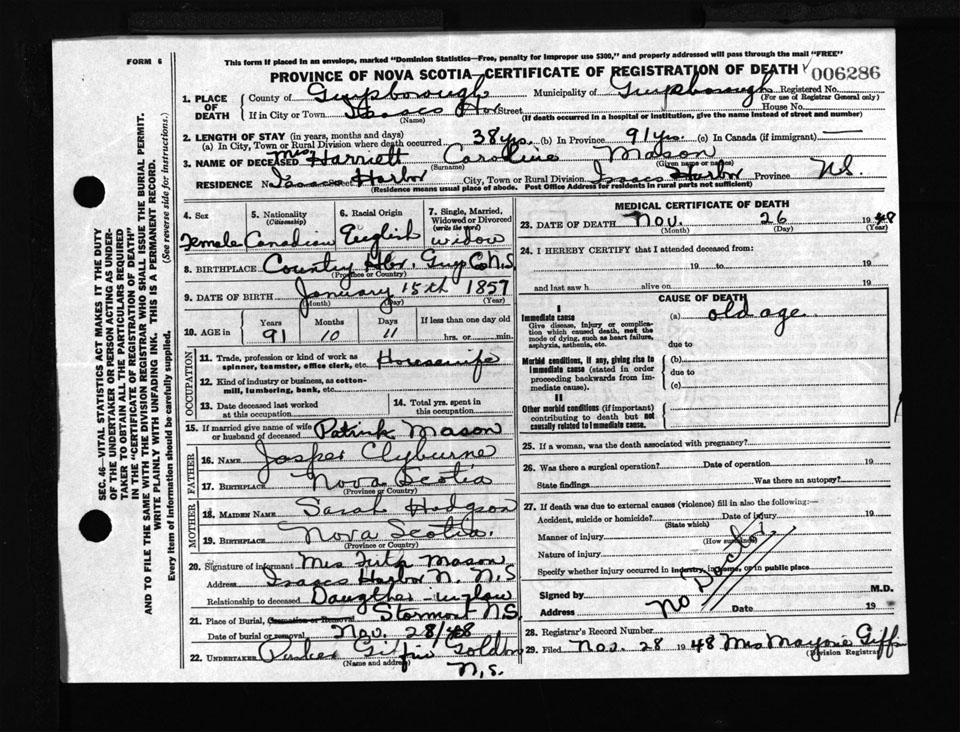 FORM 6
This form if placed in an envelope, marked "Dominion Statistics—Free, penalty for improper use $300," and properly addressed will pass through the mail "FREE"
PROVINCE OF NOVA SCOTIA—CERTIFICATE OF REGISTRATION OF DEATH
006286
1. PLACE OF DEATH
County of Guysborough Municipality of Guysborough Registered No.
(For use of Registrar General only)
If in City or Town Isaacs Hbr Street House No.
(Name) (If death occurred in a hospital or institution, give the name instead of street and number)
2. LENGTH OF STAY (in years, months and days)
(a) In City, Town or Rural Division where death occurred 38 yrs. (b) In Province 91 yrs. (c) In Canada (if immigrant) —
3. NAME OF DECEASED Mrs Harriett Caroline Mason
(Surname) (Given name or names)
RESIDENCE No. Isaacs Harbor Street City, Town or Rural Division Isaacs Harbor Province N.S.
(Residence means usual place of abode. Post Office Address for residents in rural parts not sufficient)
4. Sex Female
5. Nationality (Citizenship) Canadian
6. Racial Origin English
7. Single, Married, Widowed or Divorced (write the word) widow
8. BIRTHPLACE Country Hbr. Guy Co N.S.
(Province or Country)
9. DATE OF BIRTH January 15th 1857
(Month) (Day) (Year)
10. AGE in Years Months Days If less than one day old
91 10 11 hrs. or min.
OCCUPATION
11. Trade, profession or kind of work as spinner, teamster, office clerk, etc. Housewife
12. Kind of industry or business, as cotton-mill, lumbering, bank, etc.
13. Date deceased last worked at this occupation
14. Total yrs. spent in this occupation
15. If married give name of wife or husband of deceased Patrick Mason
FATHER
16. NAME Jasper Clyburne
17. BIRTHPLACE Nova Scotia
(Province or Country)
MOTHER
18. MAIDEN NAME Sarah Hodgson
19. BIRTHPLACE Nova Scotia.
(Province or Country)
20. Signature of informant Mrs Mason
Address Isaacs Harbor N. N.S
Relationship to deceased Daugther-inlaw
21. Place of Burial, Cremation or Removal Stormont N.S.
Date of burial or removal Nov. 28/48
22. UNDERTAKER Giffin Goldbro
(Name and address)
N.S.
MEDICAL CERTIFICATE OF DEATH
23. DATE OF DEATH Nov. 26 1948
(Month) (Day) (Year)
24. I HEREBY CERTIFY that I attended deceased from:
19 to 19
and last saw h alive on 19
CAUSE OF DEATH
I
Immediate cause
Give disease, injury or complication which caused death, not the mode of dying, such as heart failure, asphyxia, asthenia, etc.
(a) old age
due to
Morbid conditions, if any, giving rise to immediate cause (stated in order proceeding backwards from immediate cause).
(b)
due to
(c)
II
Other morbid conditions (if important) contributing to death but not causally related to immediate cause.
25. If a woman, was the death associated with pregnancy?
26. Was there a surgical operation? Date of operation 19
State findings Was there an autopsy?
27. If death was due to external causes (violence) fill in also the following:—
Accident, suicide or homicide? Date of injury 19
(State which)
Manner of injury
(How sustained)
Nature of injury
Specify whether injury occurred in industry, in home, or in public place
No Doctor
Signed by M.D.
Address Date 19
28. Registrar's Record Number
29. Filed Nov. 28 1948 Mrs Marjorie Giffin
(Division Registrar)
SEC. 46—VITAL STATISTICS ACT MAKES IT THE DUTY
OF THE UNDERTAKER OR PERSON ACTING AS UNDER-
TAKER TO OBTAIN ALL THE PARTICULARS REQUIRED
IN THE "CERTIFICATE OF REGISTRATION OF DEATH"
AND TO FILE THE SAME WITH THE DIVISION REGISTRAR WHO SHALL ISSUE THE BURIAL PERMIT.
WRITE PLAINLY WITH UNFADING INK. THIS IS A PERMANENT RECORD.
Every item of information should be carefully supplied. (See reverse side for instructions.)